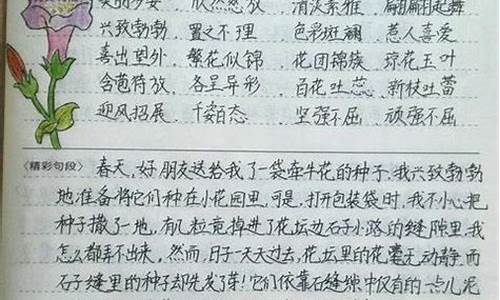 欣然怒放 清淡素雅 翩翩起舞
兴致勃勃 置之不理 色彩斑斓 惹人喜爱
喜出望外 繁花似锦 花团锦簇 琼花玉叶
含苞待放 各呈异彩 百花吐蕊 新枝吐蕾
迎风招展 千姿百态 坚强不屈 顽强不屈
〈精彩句段〉 春天,好朋友送给我了一袋牵牛花的种子.我兴致勃勃
地准备将它们种在小花园里,可是,打开包装袋时,我不小心把
种子撒了一地,有几粒竟掉进了花坛边石子小路的缝隙里.我
怎么都弄不出来,然而,日子一天天过去,花坛里的花毫无动静.而
石子缝里的种子却先发了芽!它们依靠石缝隙中仅有的一点儿泥